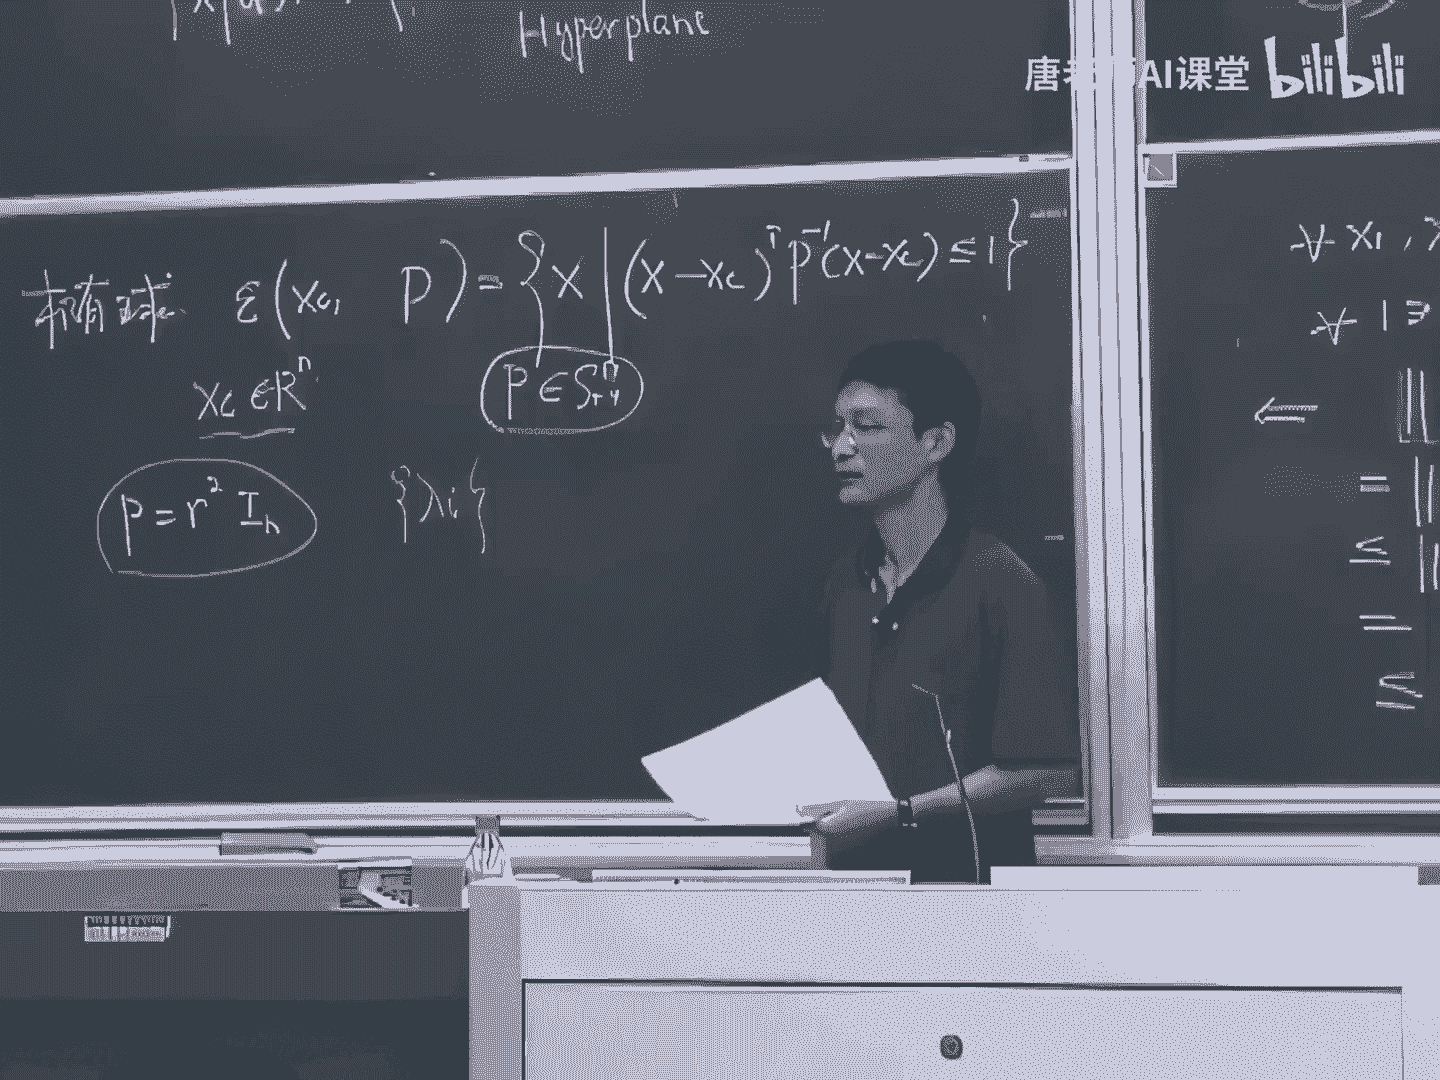 Hyperplane
唐 AI课堂 bilibili
椭球 ε(xc, P) = {x | (x-xc)ᵀ P⁻¹(x-xc) ≤ 1}
xc ∈ Rⁿ
P ∈ Sⁿ₊₊
P = r² In
{λi}
∀ x1,
∀ 1 ∋
⇐ ||
= ||
≤ ||
=
≤